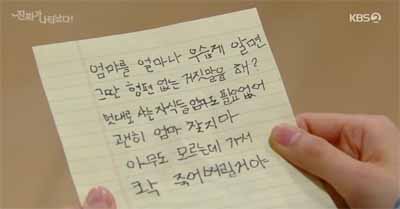 진짜가 나타났다!
KBS2
엄마를 얼마나 우습게 알면
그딴 형편 없는 거짓말을 해?
멋대로 사는 자식들 엄마도 필요없어
괜히 엄마 찾지마
아무도 모르는데 가서
콱 죽어버릴거야